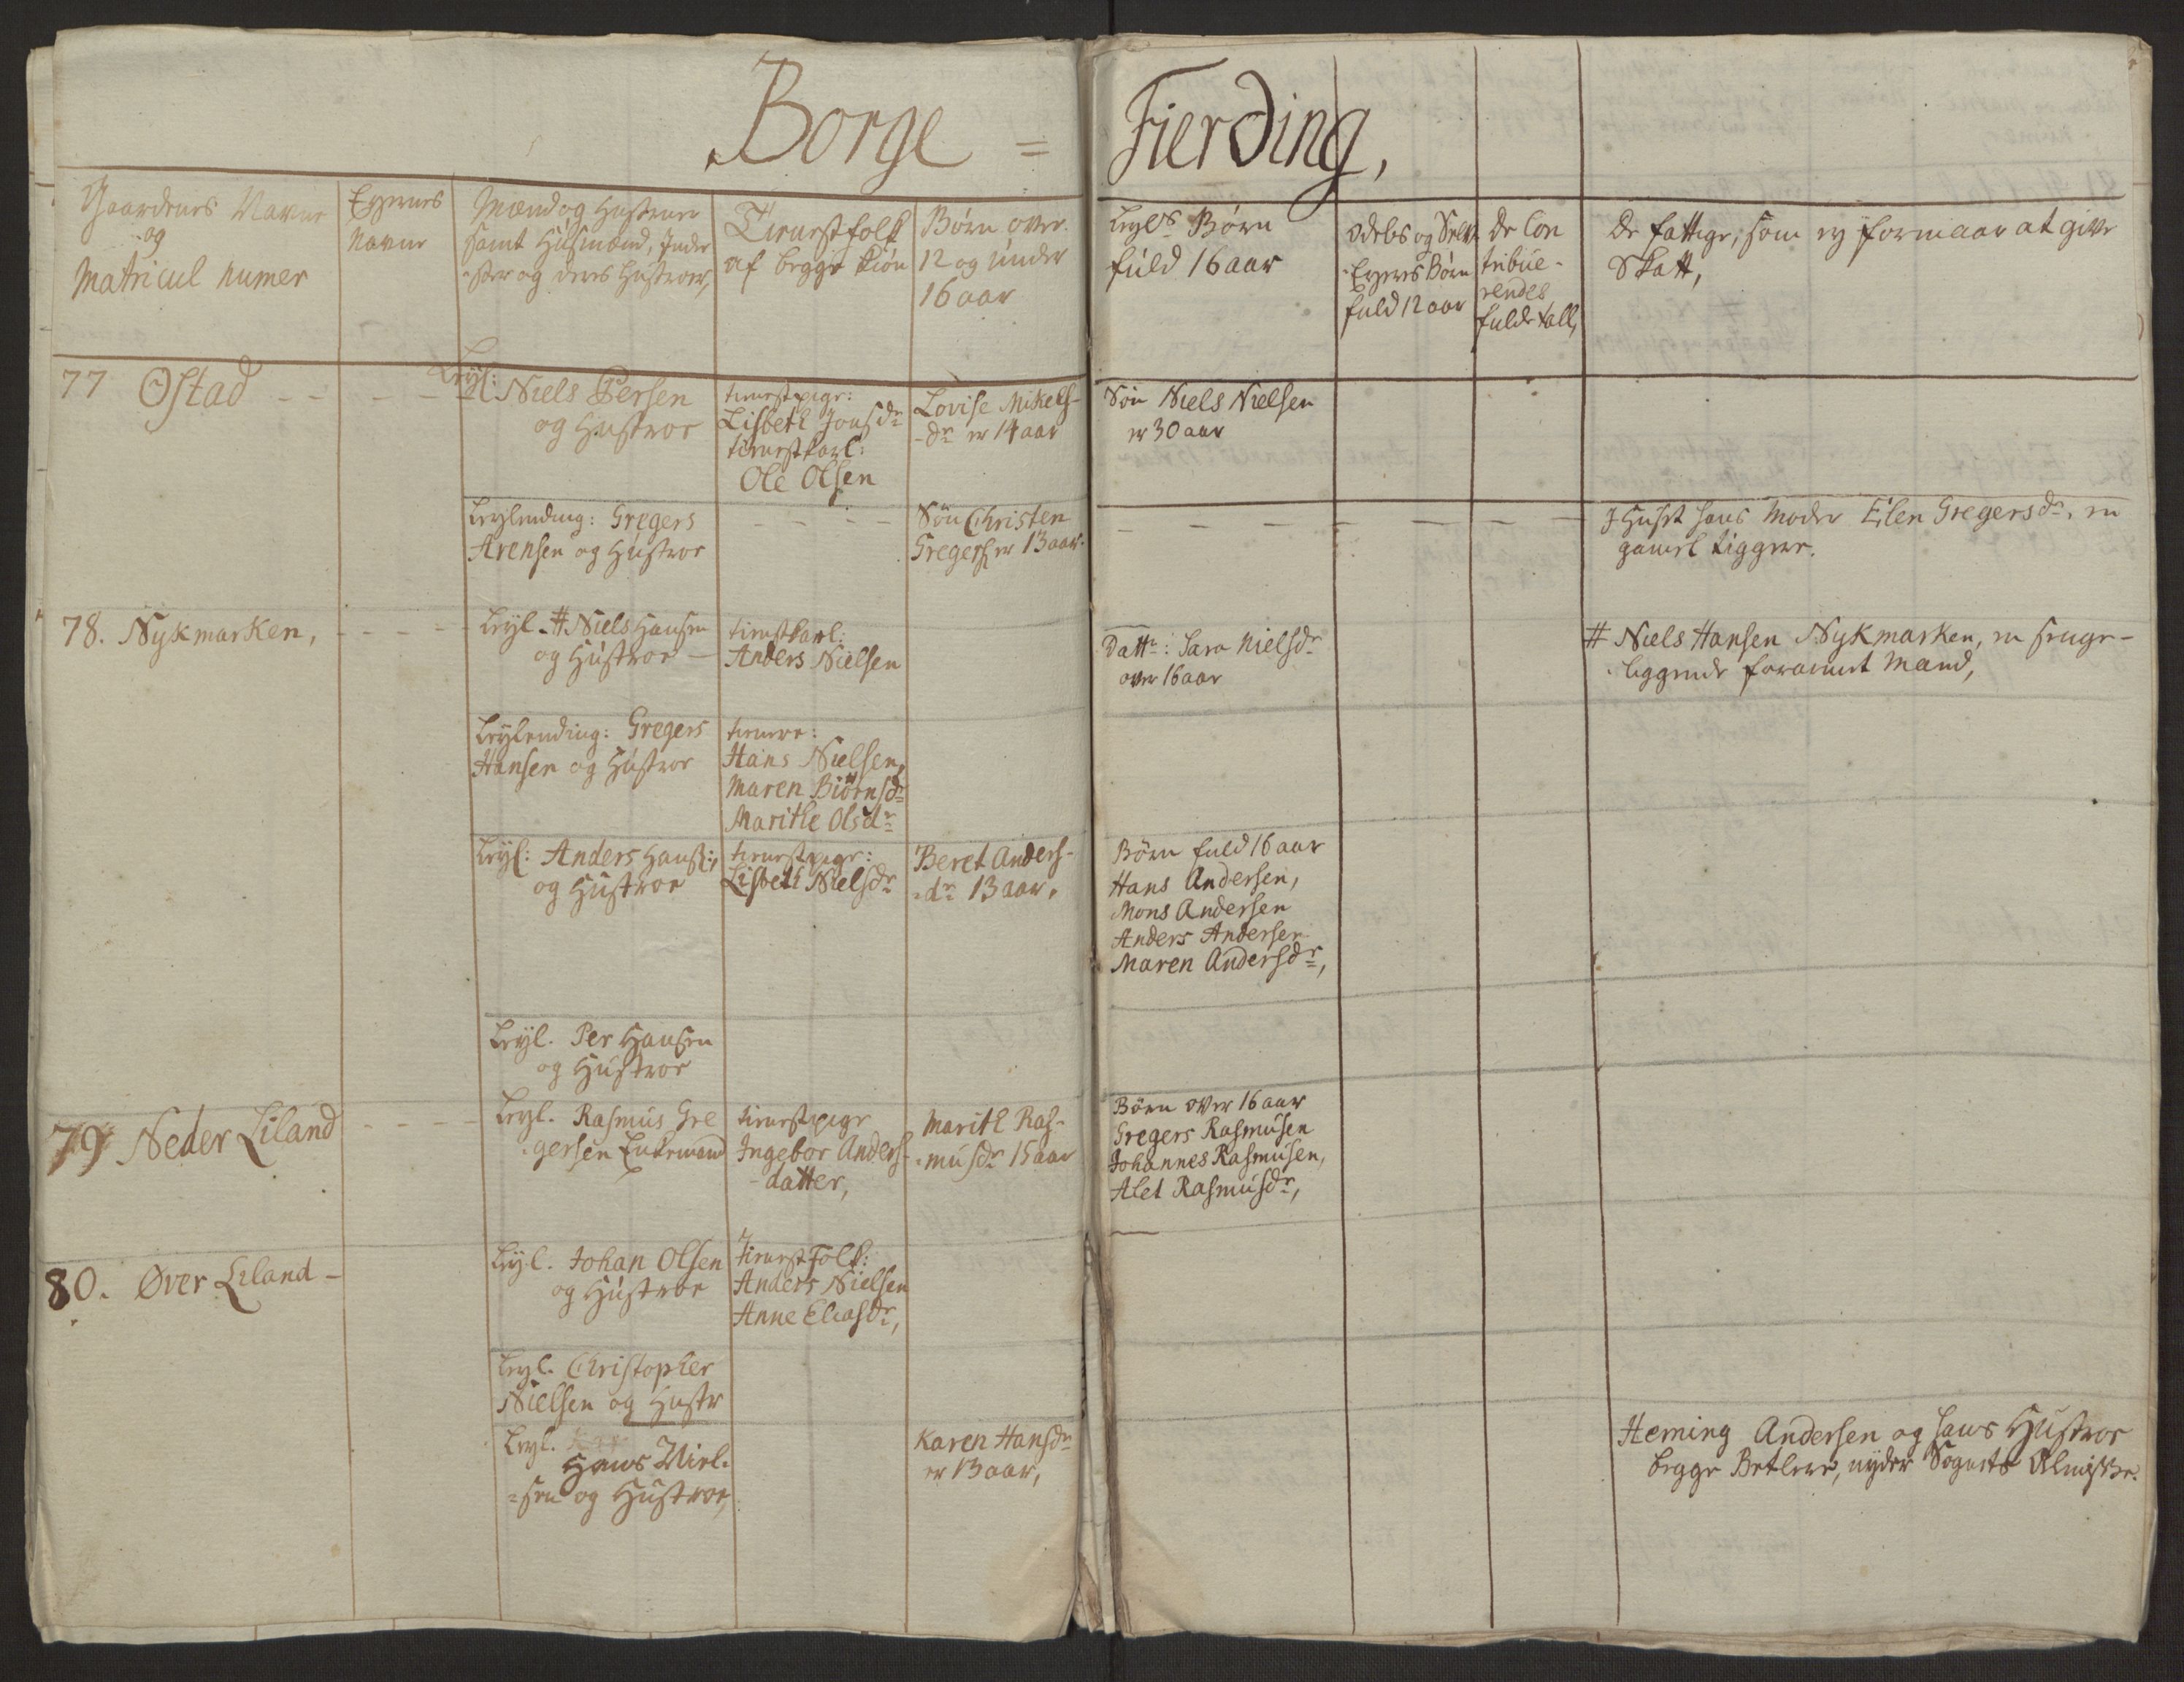 Borge = Fierding,
Gaardenes Navne
og
Matricul numer
Eyernes
Navne
Mænd og Hustruer
samt Husmænd, Inder
ster og deres Hustroer,
Tienestfolk
af begge kiøn
Børn over
12 og under
16 aar
Leyl.s Børn
fuld 16 aar
Odels og Selv
Eyers Børn
fuld 12 aar
de Con
tribue-
rendes
fulde tall,
De fattige, som ey formaar at give
Skatt,
77 Østad - - - -
Leyl: Niels Persen
og Hustroe
tienestpige:
Lisbeth Jonsdr
tienestkarl:
Ole Olsen
Lovise Mikels-
-dr er 14 aar
Søn Niels Nielsen
er 30 aar
Leylending: Gregers
Arensen og Hustroe
- - - -
Søn Christen
Gregers: er 13 aar.
- - - - - - -
I Huset hans Moder Eilen Gregersdr. en
gamel Ligger.
78. Nykmarken, - - - -
Leyl. # Niels Hansen
og Hustroe -
tienstkarl:
Anders Nielsen
Dattr: Sara Nielsdr
over 16 aar
# Niels Hansen Nykmarken, en senge-
liggende forarmet Mand,
Leylending: Gregers
Hansen og Hustroe
tienere:
Hans Nielsen,
Maren Biörnsdr
Marithe Olsdr
Leyl: Anders Hans:,
og Hustroe
tienestpige:
Lisbeth Nielsdr
Beret Anders-
-dr 13 aar,
Børn fuld 16 aar
Hans Andersen,
Mons Andersen
Anders Andersen
Maren Andersdr,
Leyl. Per Hansen
og Hustroe
79 Neder Liland - - - -
Leyl. Rasmus Gre
gersen Enkemand
tienestpige
Ingebor Anders-
-datter,
Marith Ras-
musdr 15 aar
Børn over 16 aar
Gregers Rasmusen
Johannes Rasmusen,
Alet Rasmusdr,
80. Øver Liland -
Leyl. Johan Olsen
og Hustroe
tienestFolk:
Anders Nielsen
Anne Eliasdr,
Leyl. Christopher
Nielsen og Hustr
Leyl.
Hans Niel-
=sen og Hustroe,
Karen Hansdr
er 13 aar,
Heming Andersen og hans Hustroe
begge Betlere, nyder Sognets Almisse.